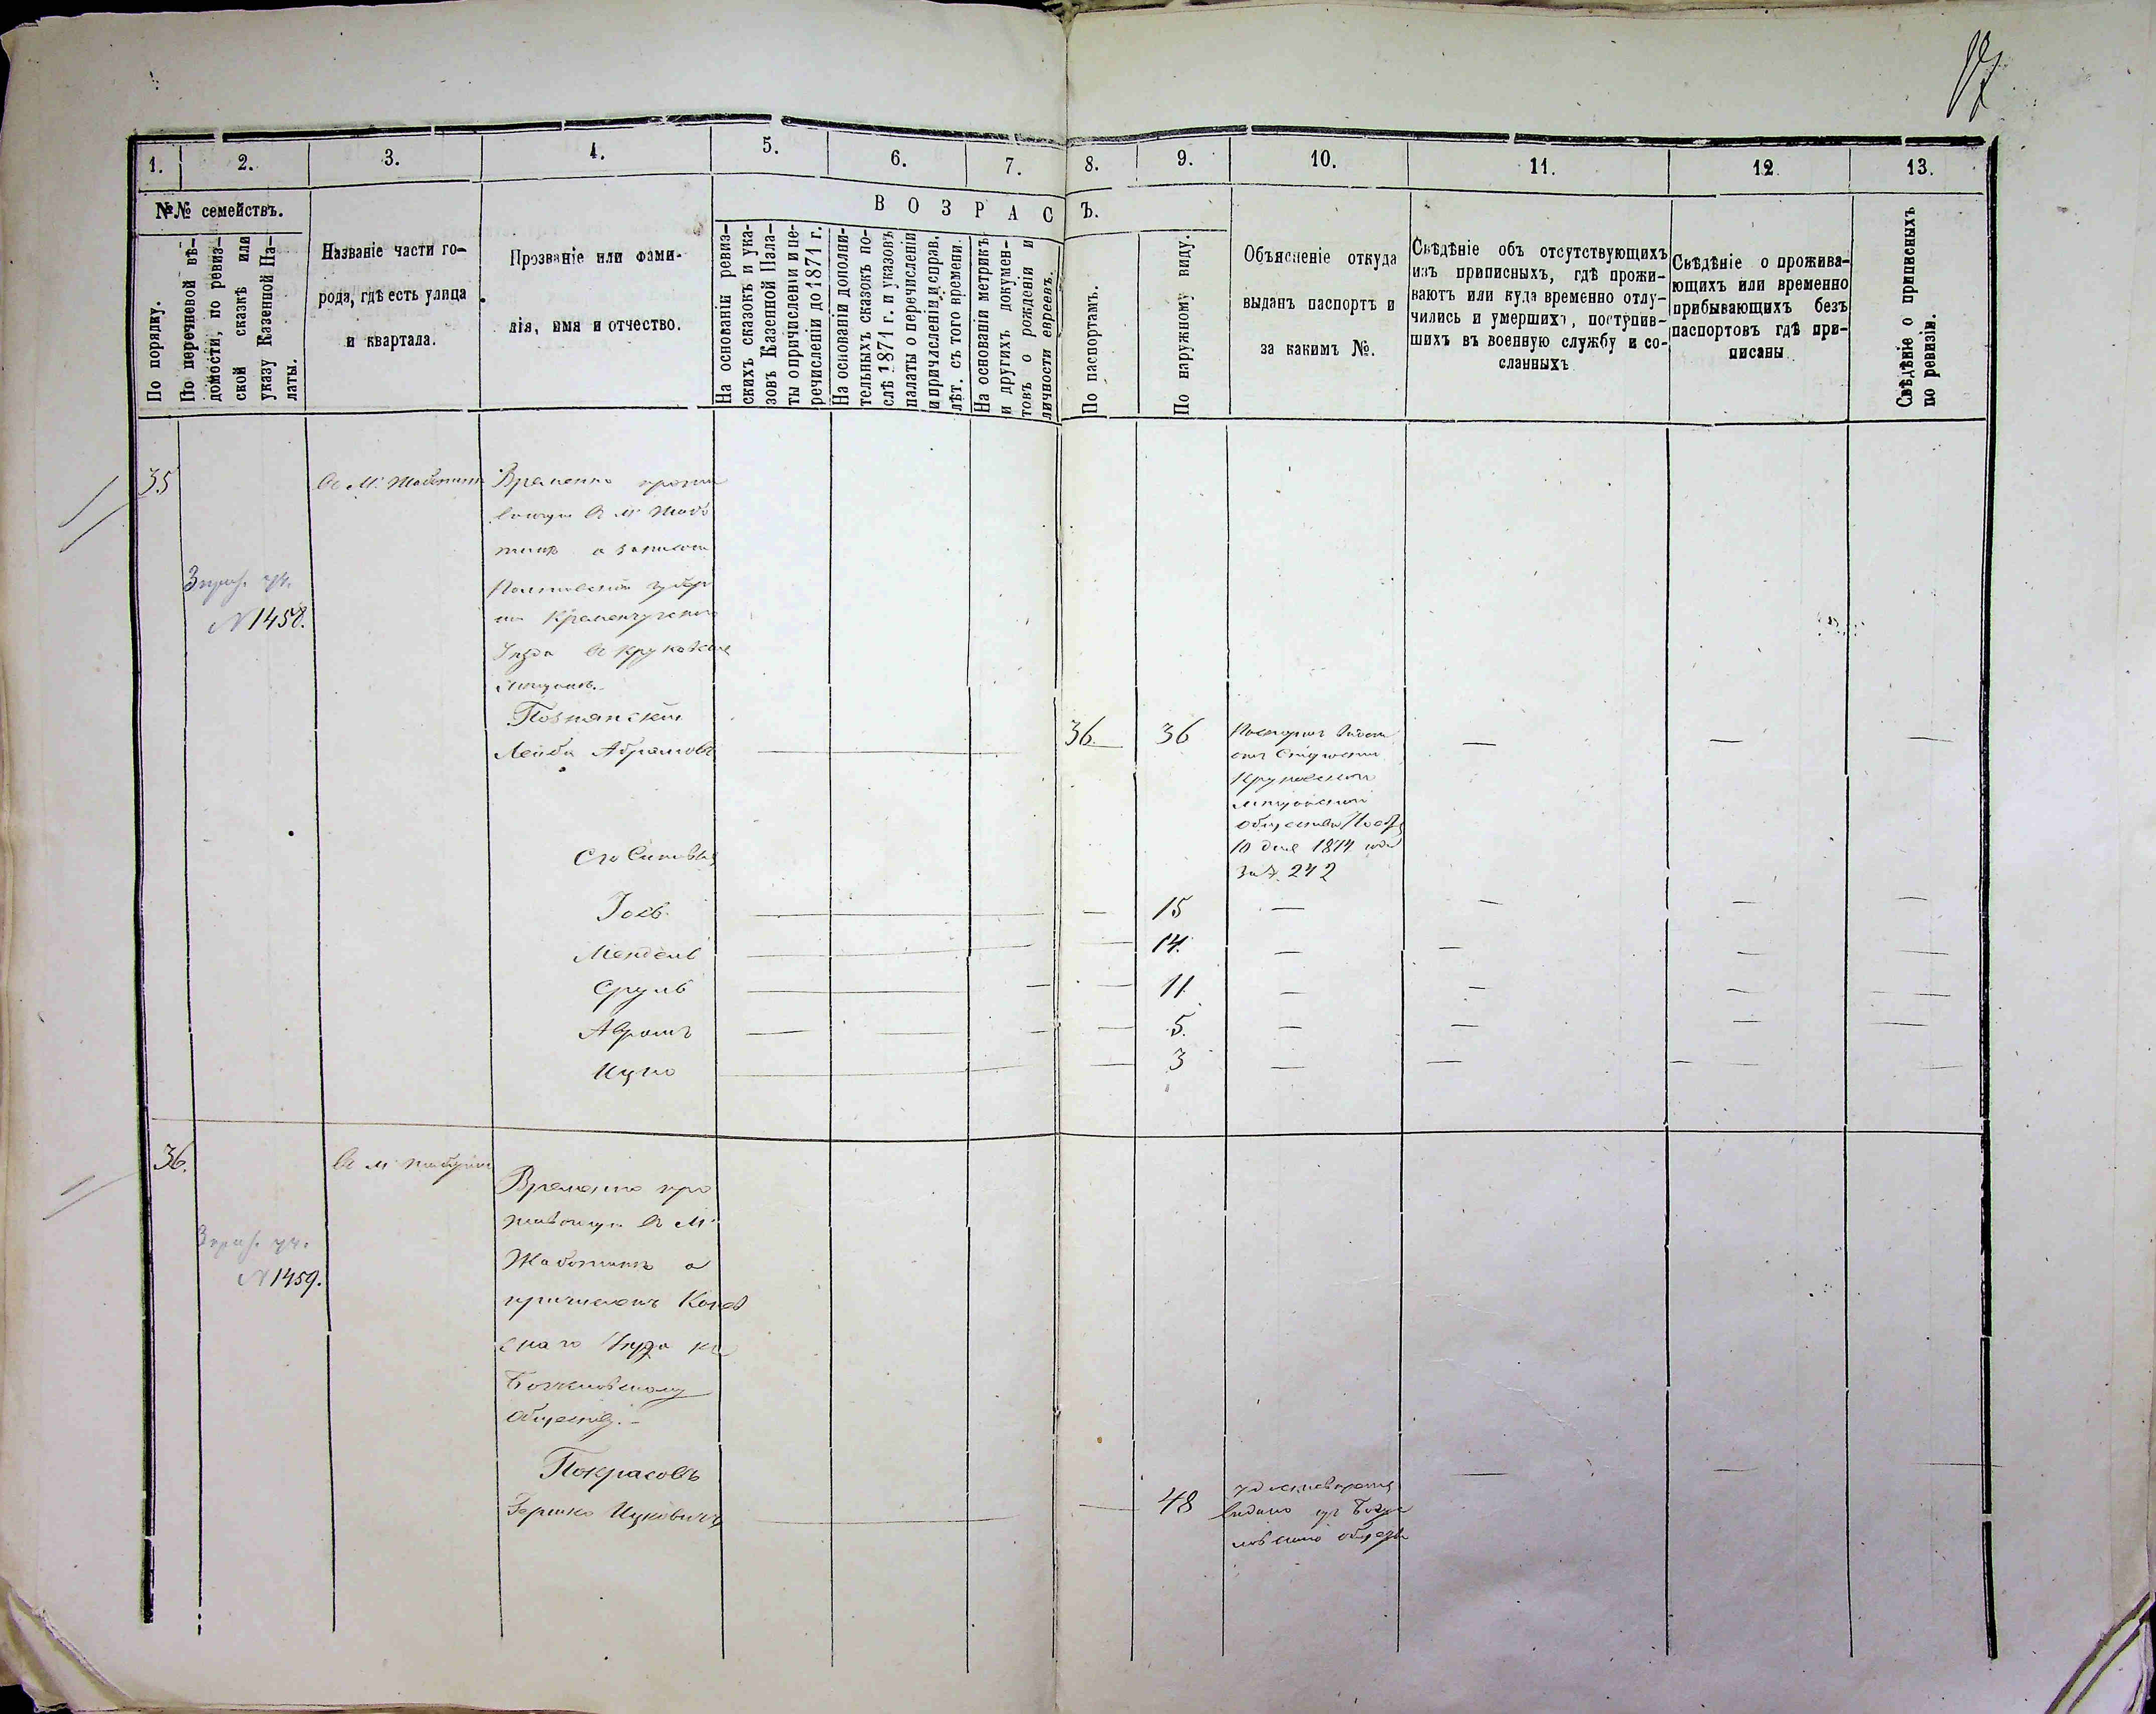 17
1.
2.
3.
4.
5.
6.
7.
8.
9.
10.
11.
12
13.
№№ семействъ.
По порядку.
По перечневой вѣ-
домости, по ревиз-
ской сказкѣ или
указу Казенной Па-
латы.
Названіе части го-
рода, гдѣ есть улица
и квартала.
Прозваніе или фами-
лія, имя и отчество.
ВОЗРАСЪ.
На основаніи ревиз-
скихъ сказокъ и ука-
зовъ Казенной Пала-
ты о причисленіи и пе-
речисленіи до 1874 г.
На основаніи дополни-
тельныхъ сказокъ по-
слѣ 1874 г. и указовъ
палаты о перечисленіи
и причисленіи и справ.
лѣт. съ того времени.
На основаніи метрикъ
и другихъ докумен-
товъ о рожденіи и
личности евреевъ.
По паспортамъ.
По наружному виду.
Объясненіе откуда
выданъ паспортъ и
за какимъ №.
Свѣдѣніе объ отсутствующихъ
изъ приписныхъ, гдѣ прожи-
ваютъ или куда временно отлу-
чились и умершихъ, поступив-
шихъ въ военную службу и со-
сланныхъ
Свѣдѣніе о прожива-
ющихъ или временно
прибывающихъ безъ
паспортовъ гдѣ при-
писаны
Свѣдѣніе о приписныхъ
по ревизіи.
35
Въ М. Жаботинѣ
Временно прожи
вающи въ м Жабо
тинѣ а записанъ
Полтавской губер
ніи Кременчугского
Уѣзда въ Круковские
мѣщане.
уч.
№1458.
Познанскій
Лейба Абрамовъ
36.
36
Паспортъ
Круковскаго
мѣщанской
общества
10 дня 1874 года
за № 242
Его Сыновья
Іось
15
Мендель
14.
Сруль
11
Авромъ
5.
Ицко
3
36.
Въ м
Временно про
живающи въ М.
Жаботинѣ а
причисленъ Канев
скаго Уѣзда къ
Богуславскому
Обществу.
уч.
№1459.
Покрасовъ
Гершко Ицковичъ
48
удостовѣрение
Видано